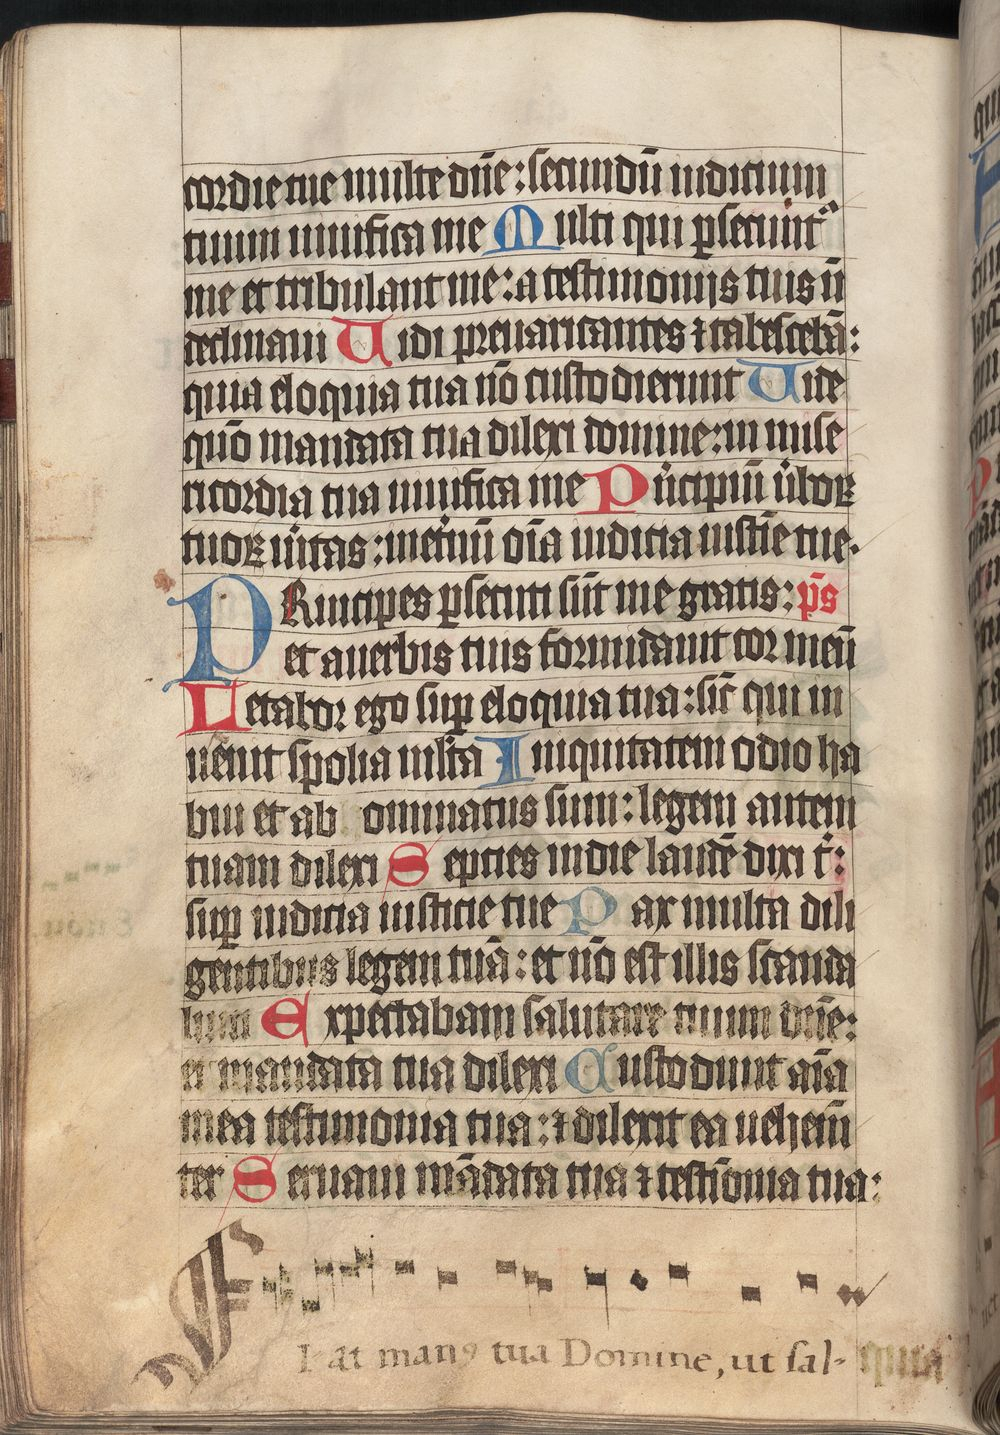 cordie tue multe dn̄e: secundū iudicium
tuum uiuifica me Multi qui ꝑsecunt᷑
me et tribulant me: a testimonijs tuis n̄
declinaui Uidi preuaricantes ⁊ tabescebā:
quia eloquia tua nō custodierunt Uide
quō mandata tua dilexi domine: in mise
ricordia tua uiuifica me Pͥncipiū ũboꝝ
tuoꝝ ũitas: inet̃nū oīa iudicia iustic̄e tue.
PRincipes ꝑsecuti sūt me gratis: p̄s
et a uerbis tuis formidauit cor meū
Letabor ego suꝑ eloquia tua: sic̄ qui in
uenit spolia ml̄ta Iniquitatem odio ha
bui et ab ominatus sum: legem autem
tuam dilexi Septies in die laudē dixi t͛:
suꝑ iudicia iusticie tue Pax multa dili
gentibus legem tuā: et nō est illis scanda
lum Expectabam salutare tuum dn̄e:
et mandata tua dilexi Custodiuit aīa
mea testimonia tua: ⁊ dilexit ea uehemē
ter Seruaui mādata tua ⁊ testīonia tua:
Fiat manꝰ tua Domine, ut sal-